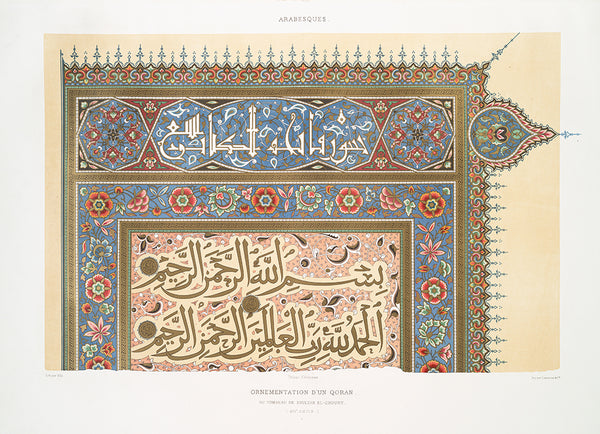 ARABESQUES.
سورة فاتحة الكتاب سبع
بسم الله الرحمن الرحيم
الحمد لله رب العالمين الرحمن الرحيم
ORNEMENTATION D'UN QORAN
DU TOMBEAU DE SULTAN EL-GHOURY.
(XVIe SIÈCLE.)